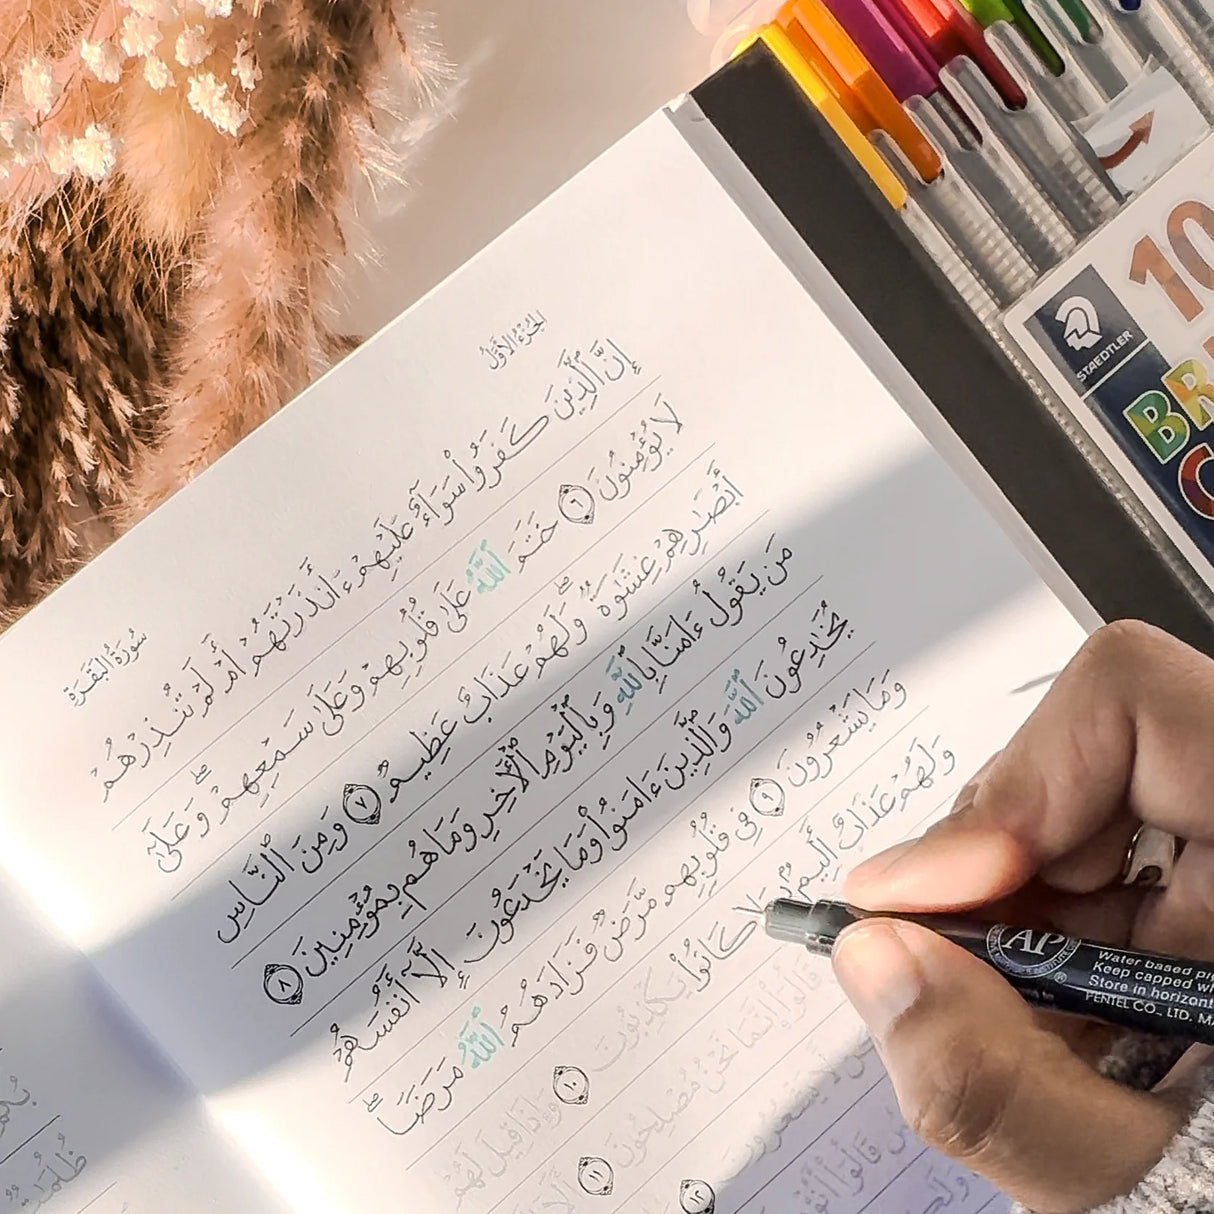 الجُزْءُ الأَوَّلُ
سُورَةُ البَقَرَةِ
إِنَّ ٱلَّذِينَ كَفَرُوا۟ سَوَآءٌ عَلَيْهِمْ ءَأَنذَرْتَهُمْ أَمْ لَمْ تُنذِرْهُمْ
لَا يُؤْمِنُونَ ٦ خَتَمَ ٱللَّهُ عَلَىٰ قُلُوبِهِمْ وَعَلَىٰ سَمْعِهِمْ ۖ وَعَلَىٰٓ
أَبْصَٰرِهِمْ غِشَٰوَةٌ ۖ وَلَهُمْ عَذَابٌ عَظِيمٌ ٧ وَمِنَ ٱلنَّاسِ
مَن يَقُولُ ءَامَنَّا بِٱللَّهِ وَبِٱلْيَوْمِ ٱلْءَاخِرِ وَمَا هُم بِمُؤْمِنِينَ ٨
يُخَٰدِعُونَ ٱللَّهَ وَٱلَّذِينَ ءَامَنُوا۟ وَمَا يَخْدَعُونَ إِلَّآ أَنفُسَهُمْ
وَمَا يَشْعُرُونَ ٩ فِى قُلُوبِهِم مَّرَضٌ فَزَادَهُمُ ٱللَّهُ مَرَضًا ۖ
وَلَهُمْ عَذَابٌ أَلِيمٌۢ كَانُوا۟ يَكْذِبُونَ ١٠ وَإِذَا قِيلَ لَهُمْ
قَالُوٓا۟ إِنَّمَا نَحْنُ مُصْلِحُونَ ١١ أَلَآ
لَّا يَشْعُرُونَ ١٢
قَالُوٓا۟
STAEDTLER
10
AP
Water based
Keep capped
Store in horizont
PENTEL CO., LTD.